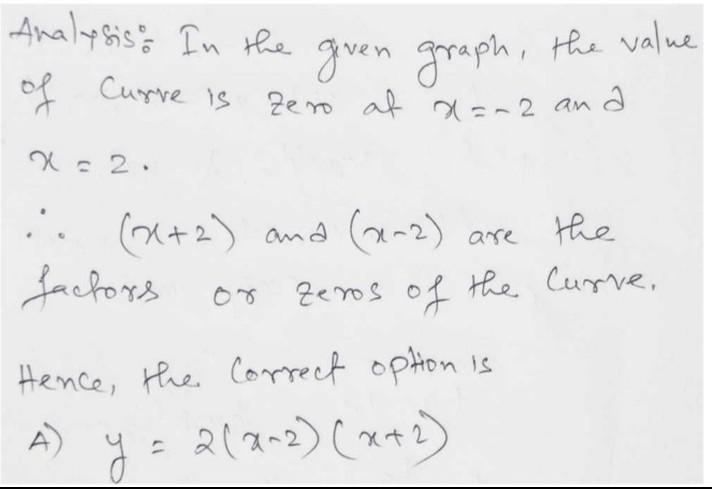 Analysis: In the given graph, the value
of Curve is zero at x=-2 and
x = 2.
∴ (x+2) and (x-2) are the
factors or zeros of the Curve.
Hence, the Correct option is
A) y = 2(x-2)(x+2)